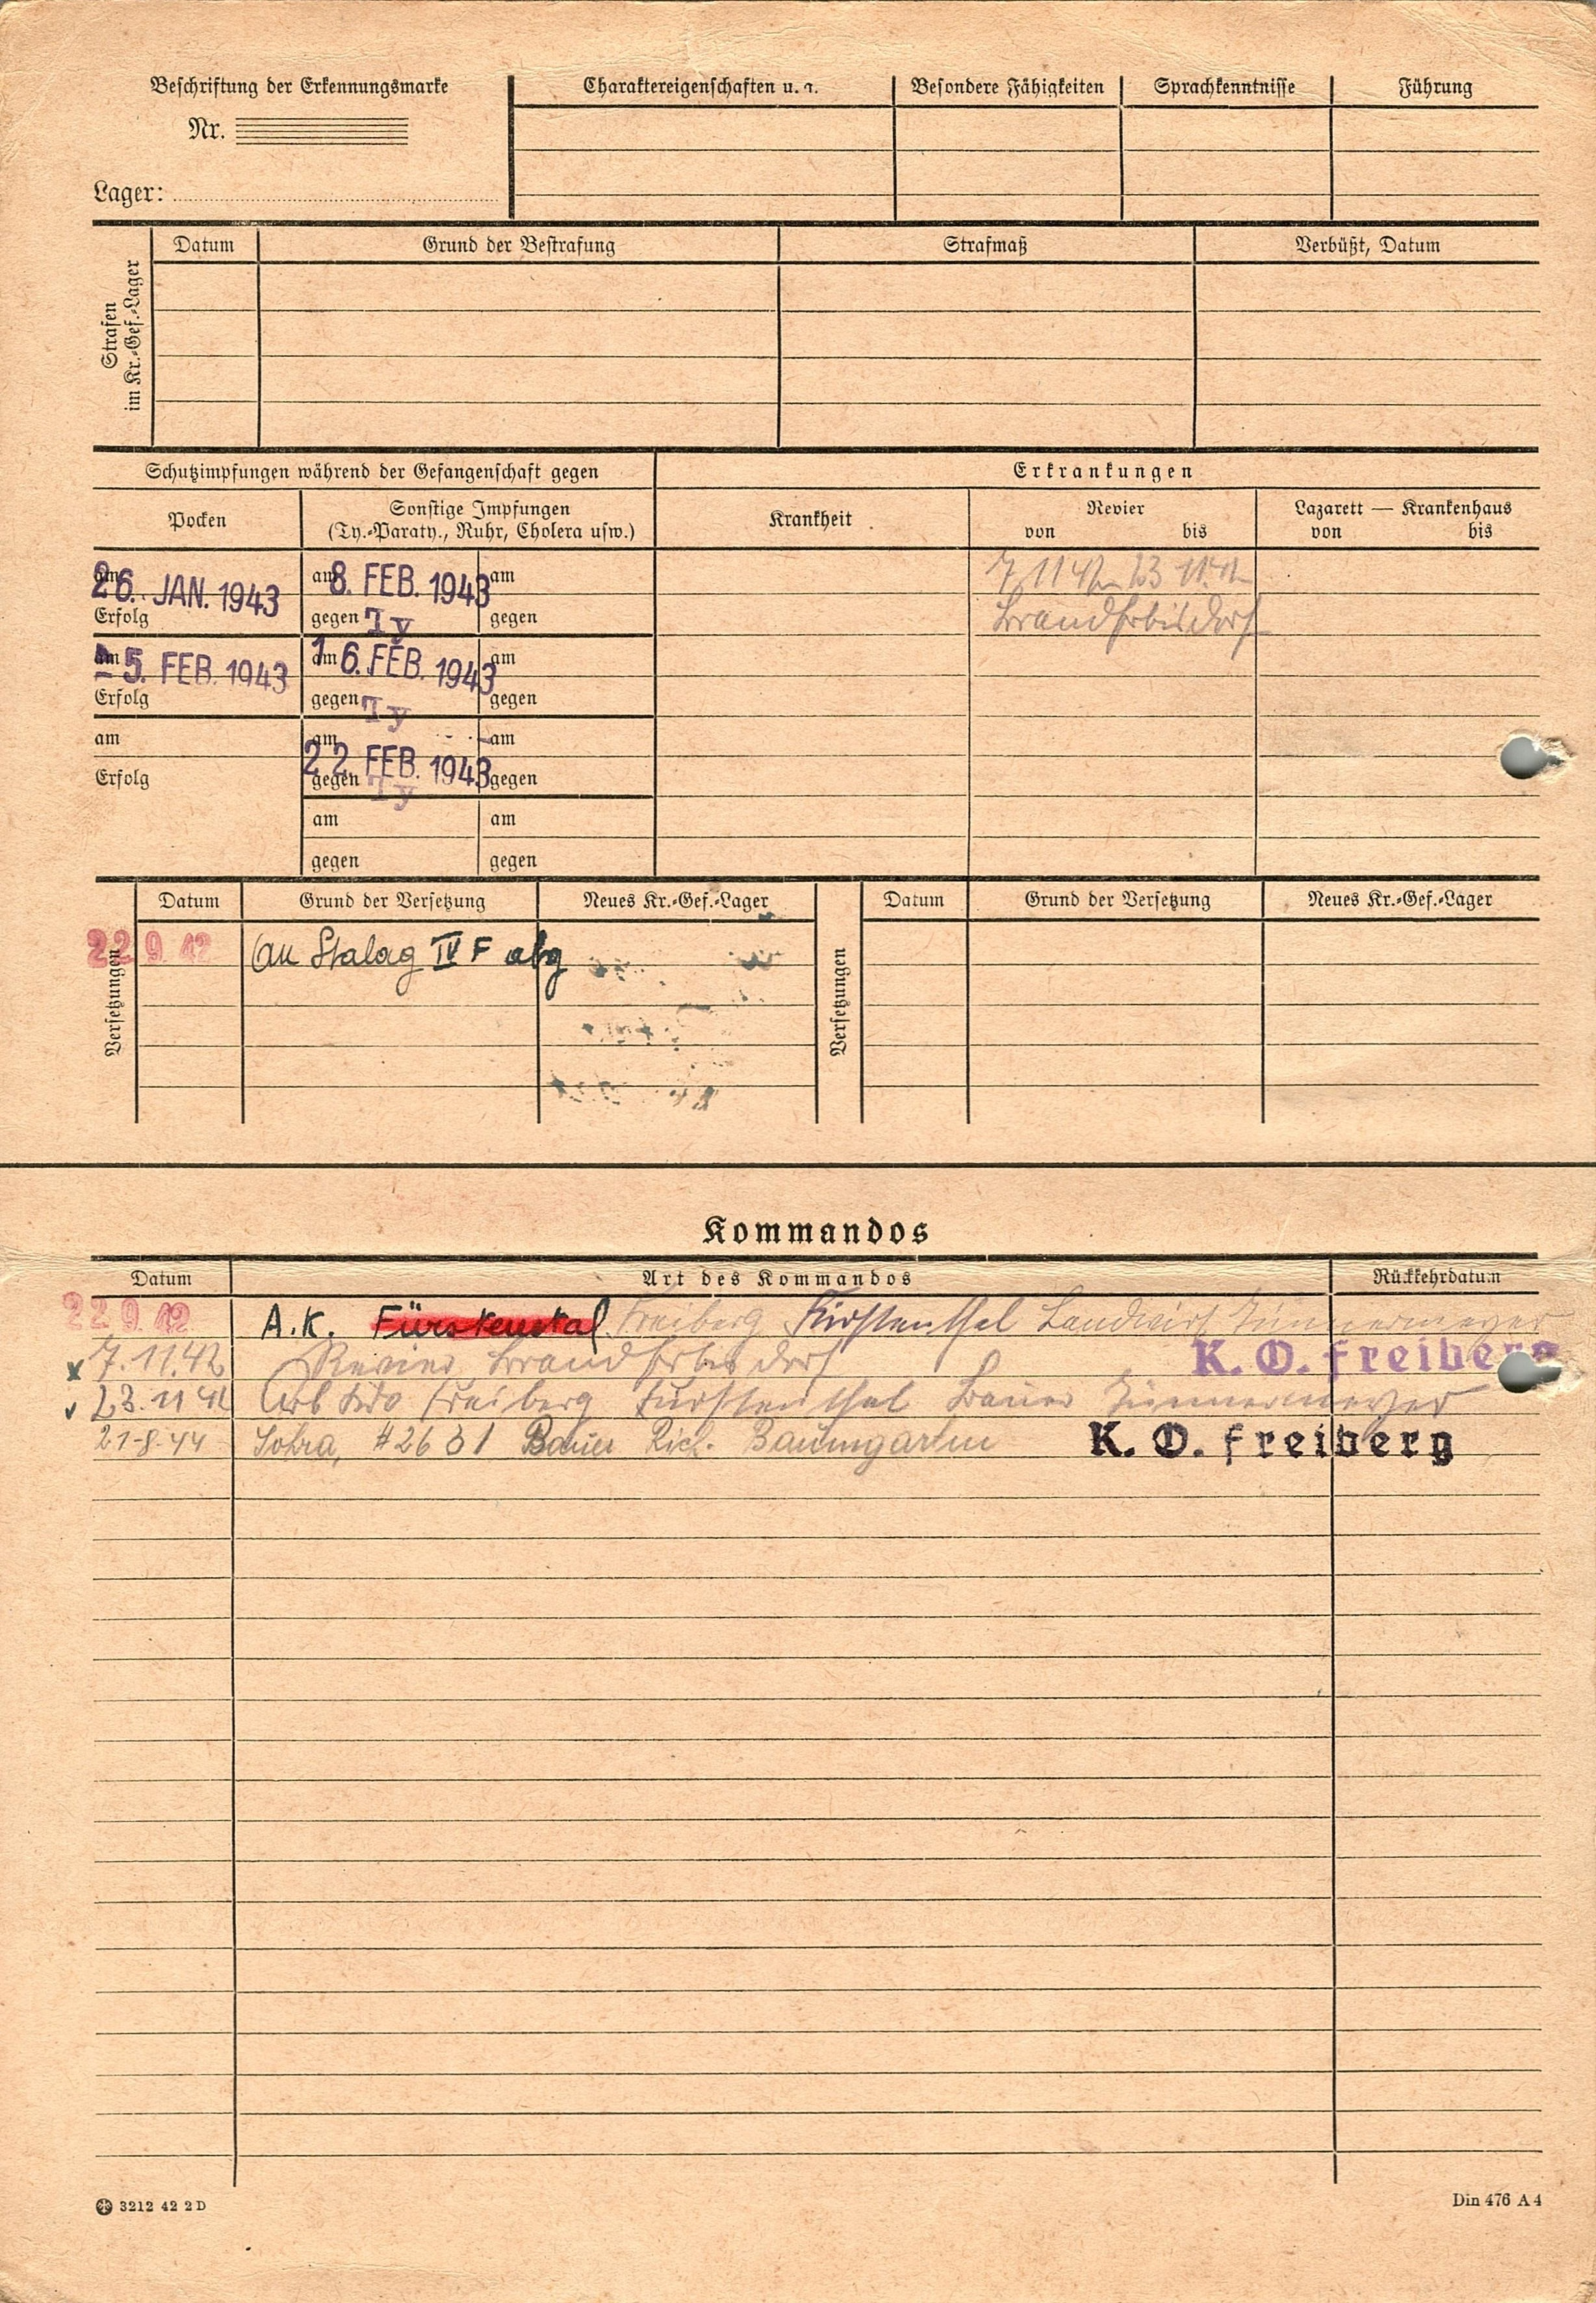 Beschriftung der Erkennungsmarke
Nr.
Lager:
Charaktereigenschaften u. a. Besondere Fähigkeiten Sprachkenntnisse Führung
Strafen
im Kr.-Gef.-Lager
Datum Grund der Bestrafung Strafmaß Verbüßt, Datum
Schutzimpfungen während der Gefangenschaft gegen
Erkrankungen
Pocken
Sonstige Impfungen
(Ty.-Paraty., Ruhr, Cholera usw.)
Krankheit
Revier
von bis
Lazarett — Krankenhaus
von bis
am 26. JAN. 1943 am 8. FEB. 1943 am
7 11 42 23 11 42
Erfolg gegen Ty gegen
Brand Erbisdorf
am 5. FEB. 1943 am 16. FEB. 1943 am
Erfolg gegen Ty gegen
am am 22 FEB. 1943 am
Erfolg gegen Ty gegen
am am
gegen gegen
Versetzungen
Datum Grund der Versetzung Neues Kr.-Gef.-Lager
22 9 42 an Stalag IV F abg
Versetzungen
Datum Grund der Versetzung Neues Kr.-Gef.-Lager
Kommandos
Datum Art des Kommandos Rückkehrdatum
22 9 42 A.K. Fürstental Freiberg Fürstenthal Landwirt Zimmermeyer
7.11.42 Revier Brand Erbisdorf K. O. freiberg
23.11 42 Arb Kdo Freiberg Fürstenthal Bauer Zimmermeyer
21-8-44 Sohra, # 2631 Bauer Rich. Baumgarten K. O. freiberg
3212 42 2 D
Din 476 A 4